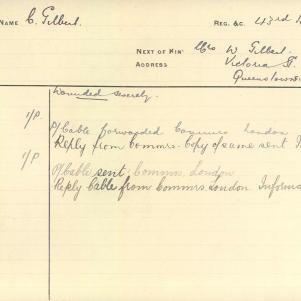 NAME C. Gilbert.
REG. &C. 43rd B
NEXT OF KIN Mrs W Gilbert.
ADDRESS Victoria St.
Queenstown.
Wounded severely.
1/P
P/Cable forwarded Commrs London
Reply from Commrs. Copy of same sent
1/P
P/Cable sent Commrs, London
Reply Cable from Commrs London Informa